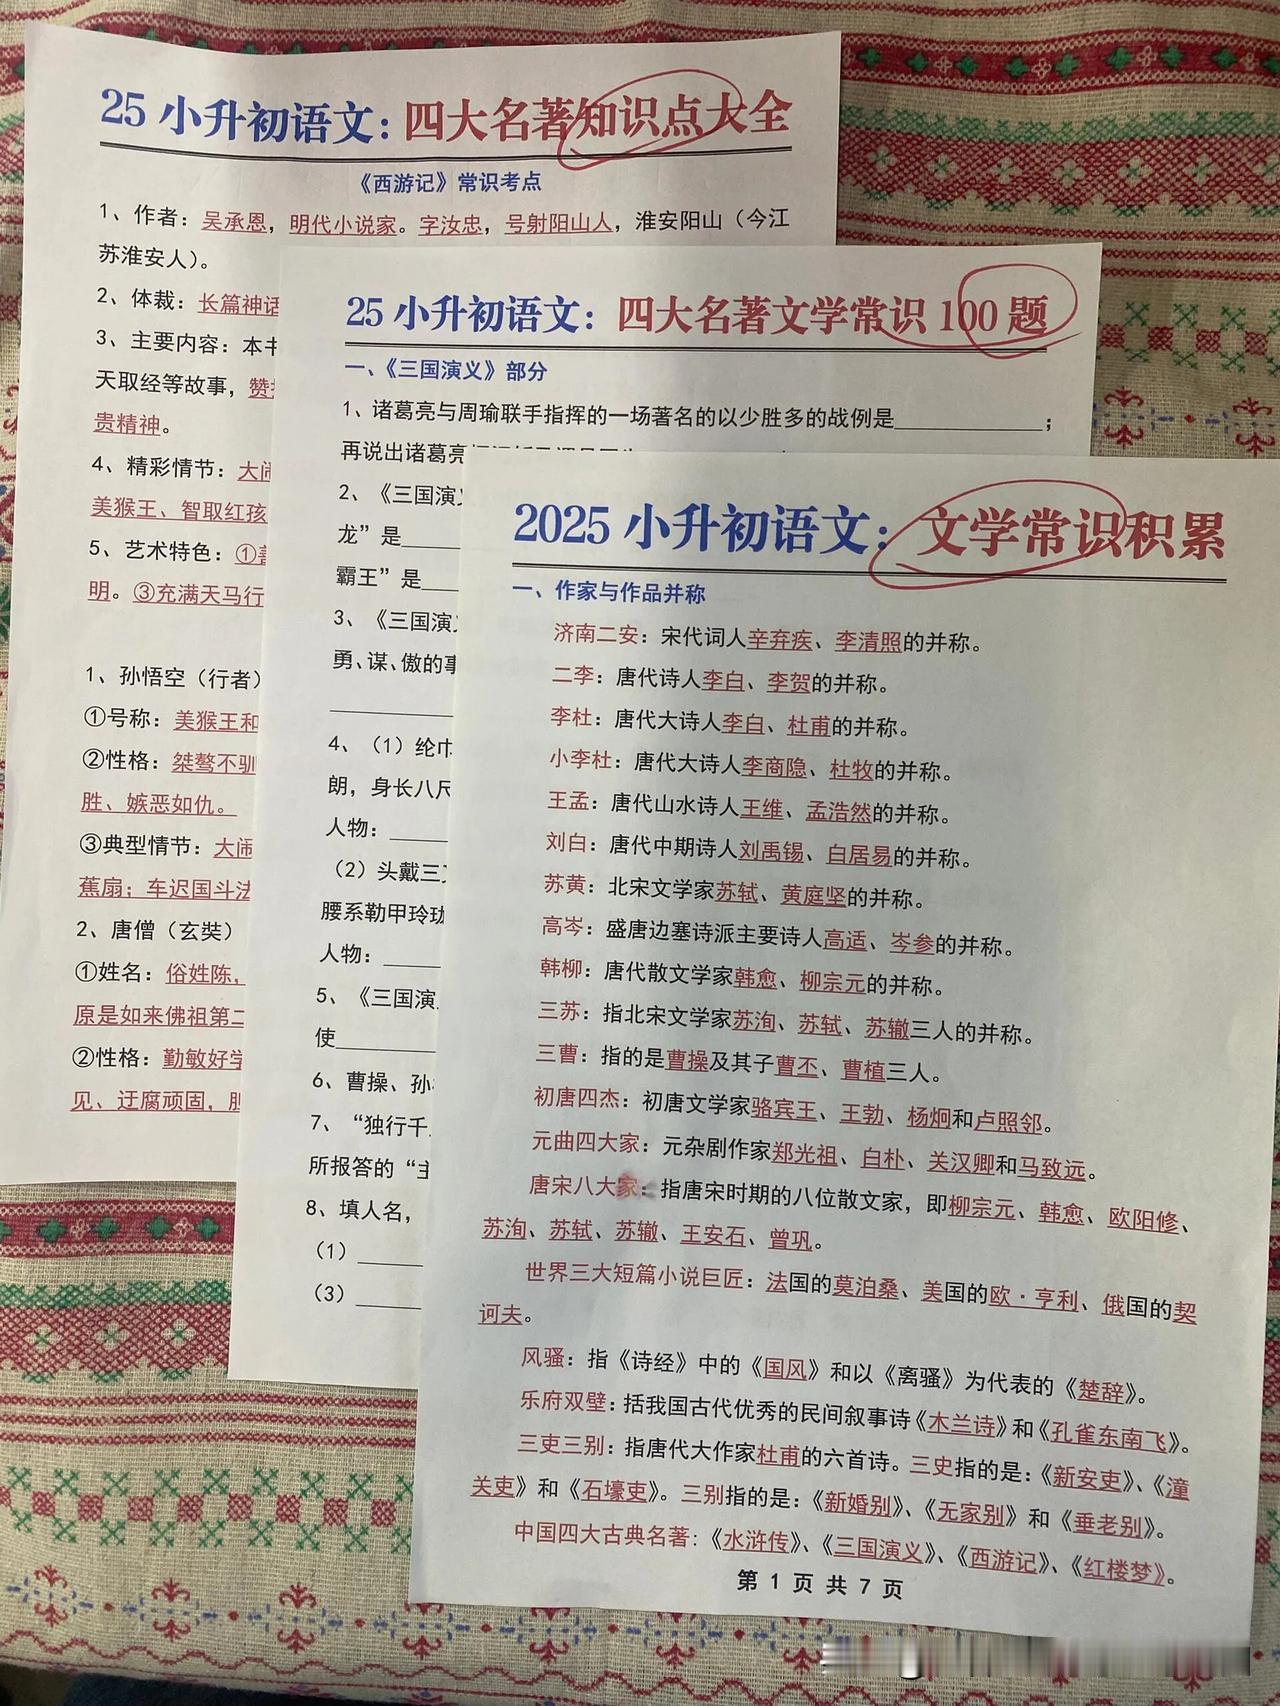 25 小升初语文：四大名著知识点大全
《西游记》常识考点
1、作者：吴承恩，明代小说家。字汝忠，号射阳山人，淮安阳山（今江
苏淮安人）。
2、体裁：长篇神话
3、主要内容：本书
天取经等故事，赞
贵精神。
4、精彩情节：大闹
美猴王、智取红孩
5、艺术特色：①善
明。③充满天马行
1、孙悟空（行者）
①号称：美猴王和
②性格：桀骜不驯
胜、嫉恶如仇。
③典型情节：大闹
蕉扇；车迟国斗法
2、唐僧（玄奘）
①姓名：俗姓陈，
原是如来佛祖第二
②性格：勤敏好学
见、迂腐顽固，胆
25 小升初语文：四大名著文学常识 100 题
一、《三国演义》部分
1、诸葛亮与周瑜联手指挥的一场著名的以少胜多的战例是____________；
再说出诸葛亮
2、《三国演义
龙”是____
霸王”是____
3、《三国演义
勇、谋、傲的事
4、（1）纶巾
朗，身长八尺
人物：____
（2）头戴三
腰系勒甲玲珑
人物：____
5、《三国演
使________
6、曹操、孙
7、“独行千
所报答的“主
8、填人名，
（1）_____
（3）_____
2025 小升初语文：文学常识积累
一、作家与作品并称
济南二安：宋代词人辛弃疾、李清照的并称。
二李：唐代诗人李白、李贺的并称。
李杜：唐代大诗人李白、杜甫的并称。
小李杜：唐代大诗人李商隐、杜牧的并称。
王孟：唐代山水诗人王维、孟浩然的并称。
刘白：唐代中期诗人刘禹锡、白居易的并称。
苏黄：北宋文学家苏轼、黄庭坚的并称。
高岑：盛唐边塞诗派主要诗人高适、岑参的并称。
韩柳：唐代散文学家韩愈、柳宗元的并称。
三苏：指北宋文学家苏洵、苏轼、苏辙三人的并称。
三曹：指的是曹操及其子曹丕、曹植三人。
初唐四杰：初唐文学家骆宾王、王勃、杨炯和卢照邻。
元曲四大家：元杂剧作家郑光祖、白朴、关汉卿和马致远。
唐宋八大家：指唐宋时期的八位散文家，即柳宗元、韩愈、欧阳修、
苏洵、苏轼、苏辙、王安石、曾巩。
世界三大短篇小说巨匠：法国的莫泊桑、美国的欧·亨利、俄国的契
诃夫。
风骚：指《诗经》中的《国风》和以《离骚》为代表的《楚辞》。
乐府双壁：括我国古代优秀的民间叙事诗《木兰诗》和《孔雀东南飞》。
三吏三别：指唐代大作家杜甫的六首诗。三史指的是：《新安吏》、《潼
关吏》和《石壕吏》。三别指的是：《新婚别》、《无家别》和《垂老别》。
中国四大古典名著：《水浒传》、《三国演义》、《西游记》、《红楼梦》。
第 1 页 共 7 页